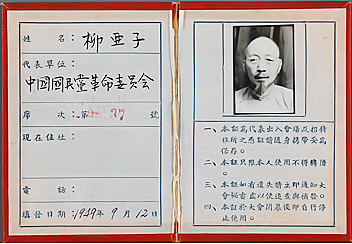 姓名：柳亜子
代表單位：
中国國民黨革命委员会
席次：第 37 號
現在住址：
電話：
填發日期：1949年9月12日
一、本証為代表出入會場及招待
住所之憑証請隨身携帶妥為
保存。
二、本証只限本人使用不得轉借
。
三、本証如有遺失請立即通知大
會秘書處以便追查與補發。
四、本証於大會閉幕後即自行停
止使用。